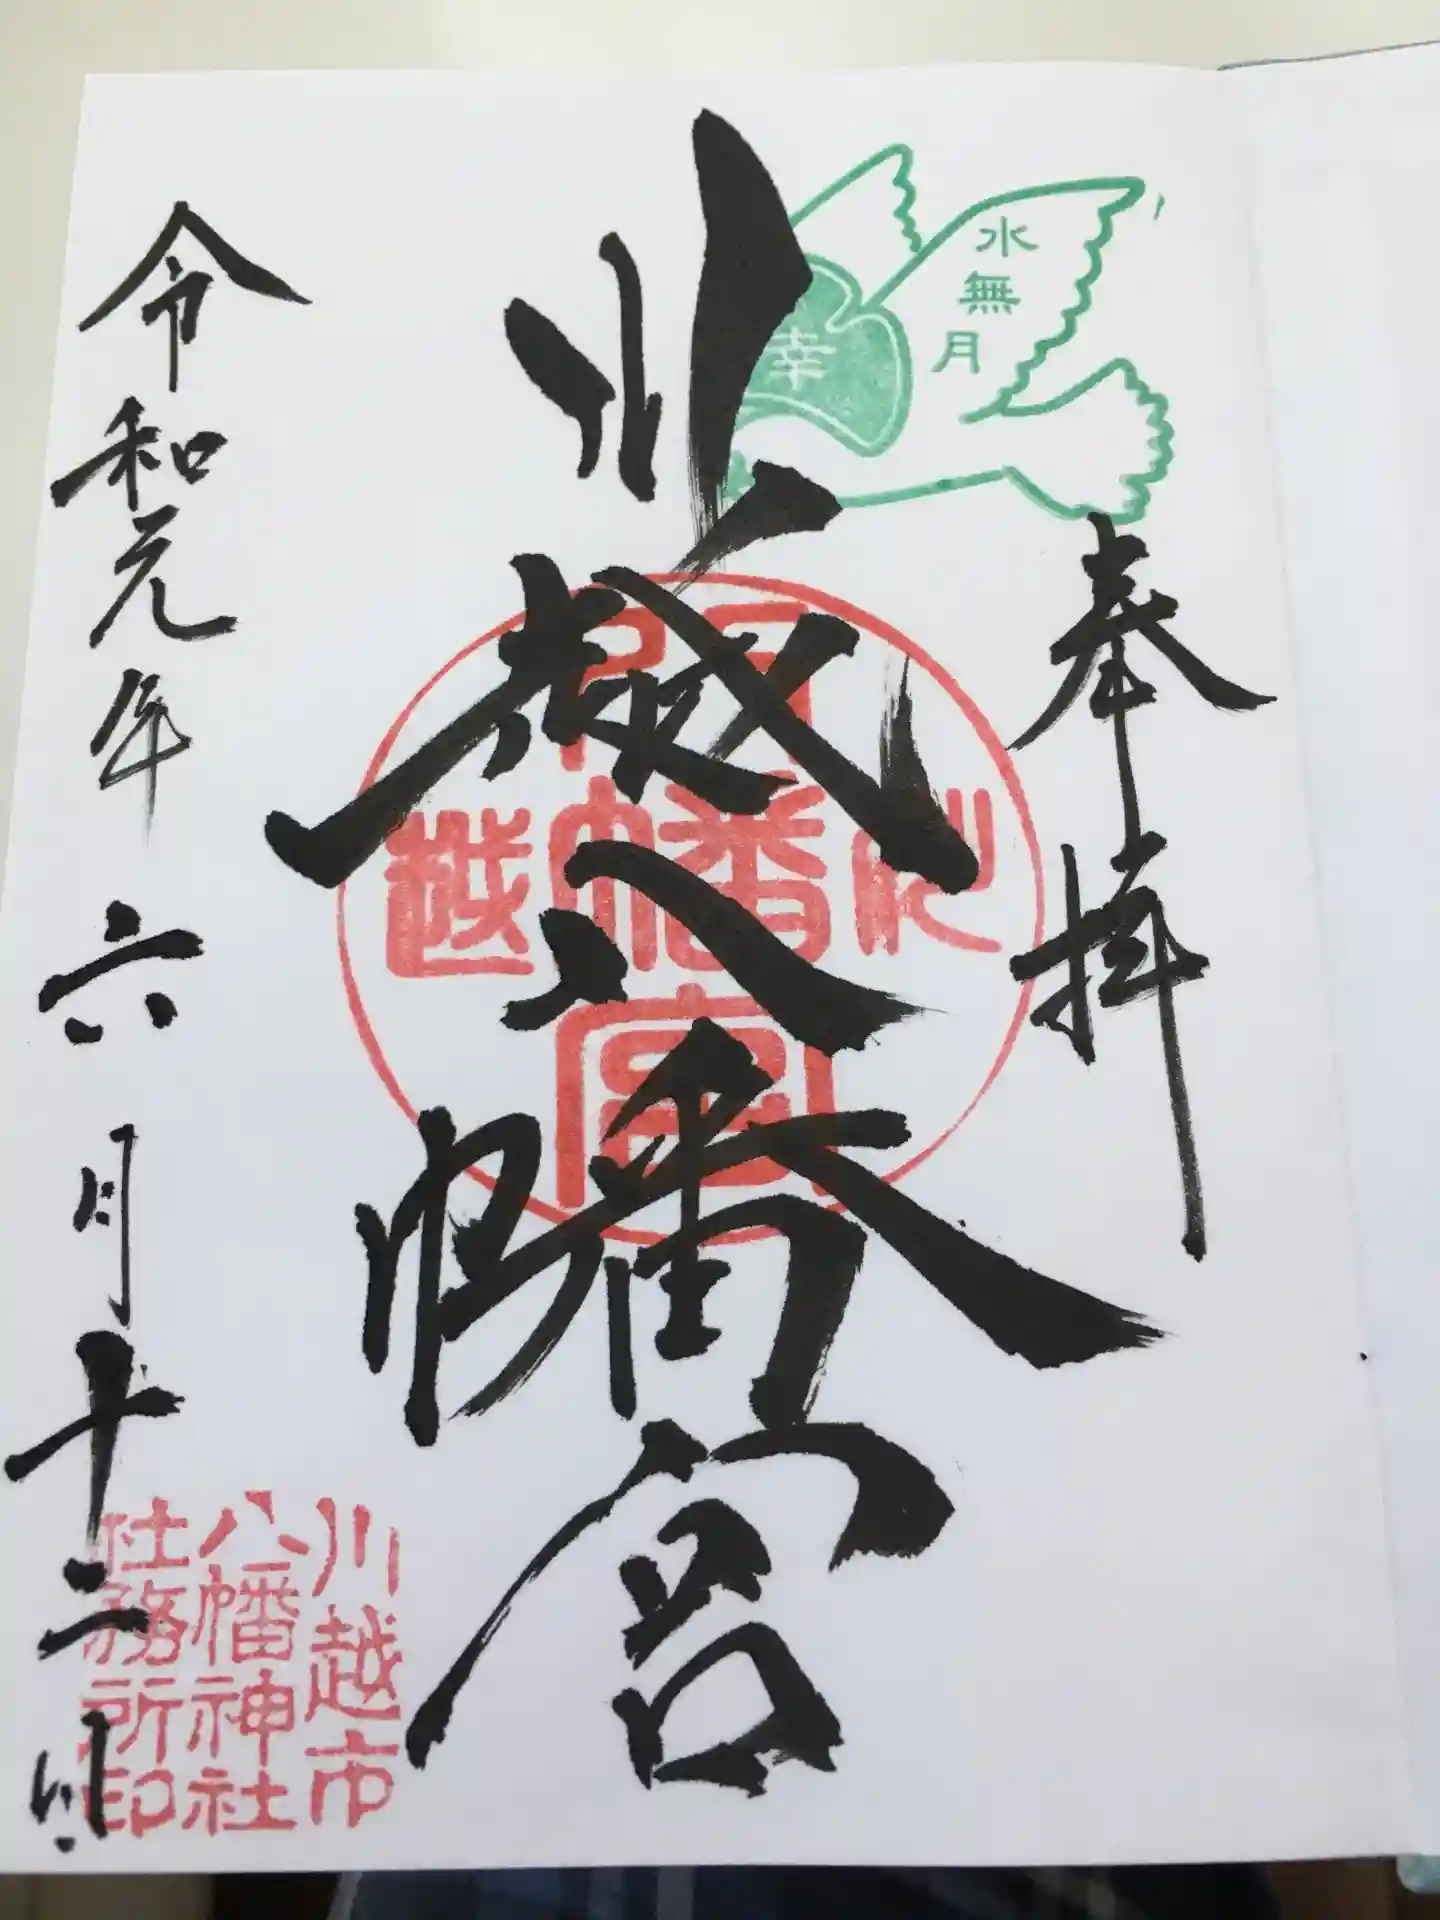 奉拝
水無月
幸
川越八幡宮
川越
八幡宮
令和元年六月十二日
川越市
八幡神社
社務所印